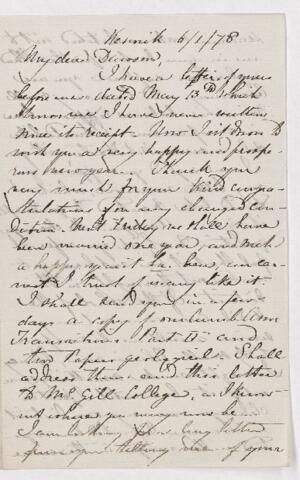 Keswick 6/1/78
My dear Dawson,
I have a letter of yours
before me dated May 13th which
shows me I have never written
since its receipt. Now I sit down to
wish you a very happy and prosper-
ous new year. Thank you
very much for your kind congra-
tulations for my changed con-
dition. Next Tuesday we shall have
been married one year, and such
a happy year it has been, an ear-
nest I trust of many like it.
I shall send you in a few
days a copy of our Cumberland Assn
Transactions Part II and
two Papers geological. Shall
address them and this letter
to McGill College, as I know
not where you may now be.
I am looking for a long letter
from you telling me of your